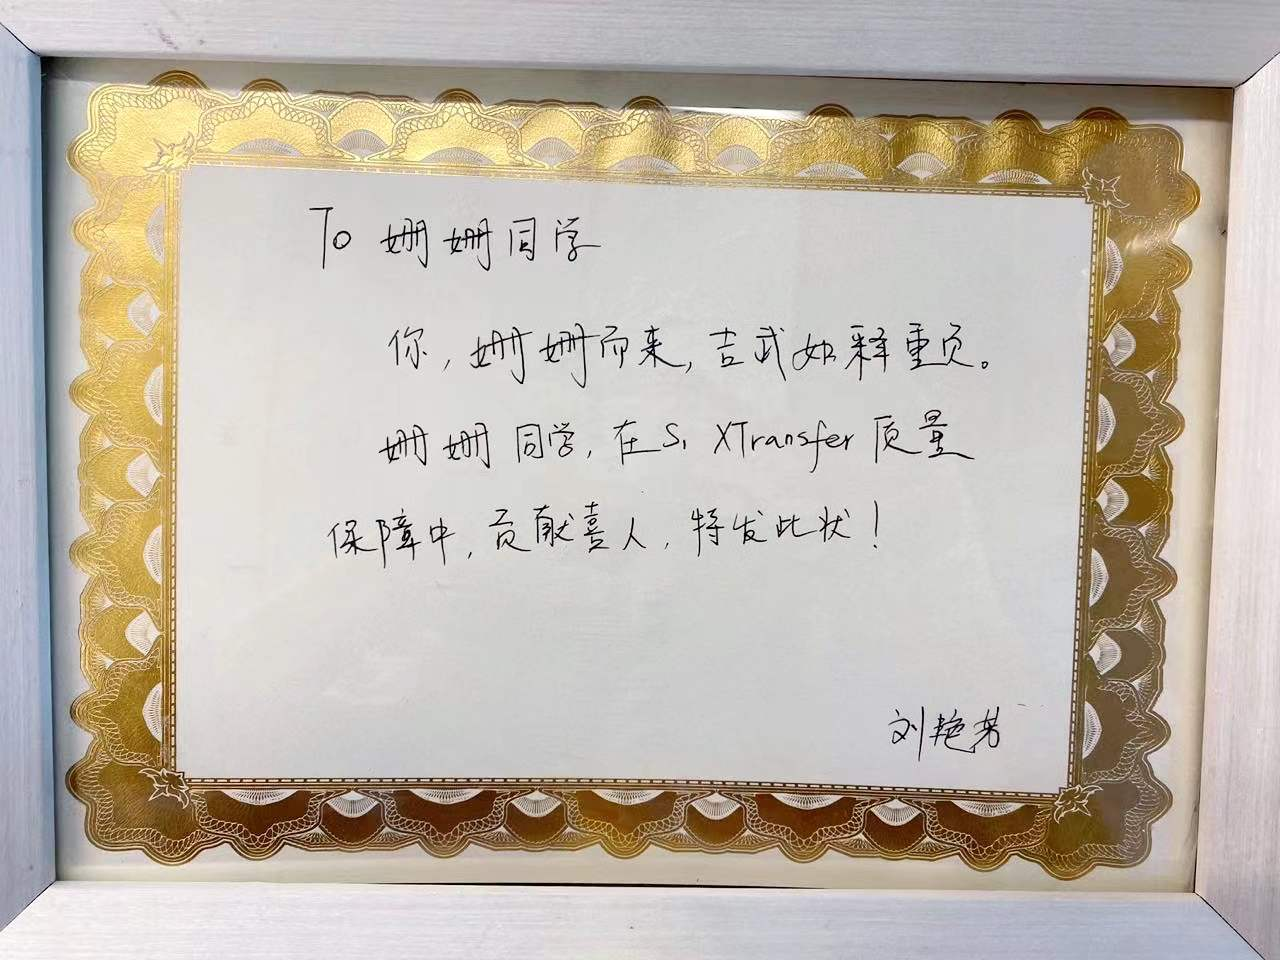 To 姗姗同学
你，姗姗而来，吉武如释重负。
姗姗同学，在S1 XTransfer质量
保障中，贡献喜人，特发此状！
刘艳芳